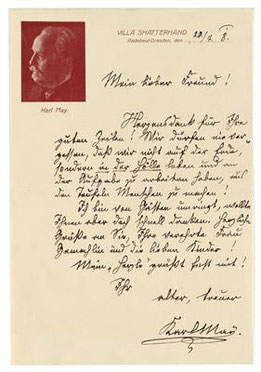 VILLA SHATTERHAND
Radebeul-Dresden, den 20/4. 8.
Karl May.
Mein lieber Freund!
Herzensdank für Ihre
guten Zeilen! Wir dürfen nie ver-
gessen, daß wir nicht auf der Erde,
sondern in der Hölle leben und an
der Aufgabe zu arbeiten haben, aus
den Teufeln Menschen zu machen!
Ich bin von Gästen umringt, wollte
Ihnen aber doch schnell danken. Herzliche
Grüße an Sie, Ihre verehrte Frau
Gemahlin und die lieben Kinder!
Mein „Herzle“ grüßt fest mit!
Ihr
alter, treuer
Karl May.